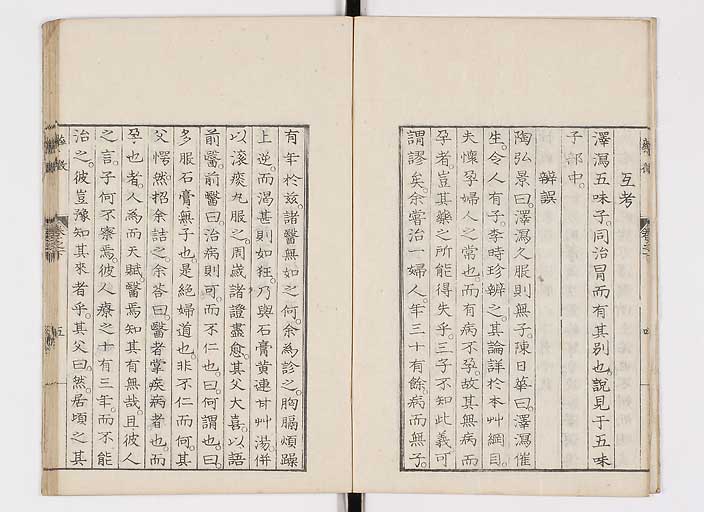 互考
澤瀉五味子。同治冒而有其別也。說見于五味
子部中。
辨誤
陶弘景曰。澤瀉久服則無子。陳日華曰。澤瀉催
生。令人有子。李時珍辨之。其論詳於本艸綱目。
夫懷孕婦人之常也。而有病不孕。故其無病而
孕者。豈其藥之所能得失乎。三子不知此義。可
謂謬矣。余嘗治一婦人。年三十有餘。病而無子。
有年於茲。諸醫無如之何。余為診之。胸膈煩躁
上逆。而渴甚則如狂。乃與石膏黃連甘艸湯。併
以滾痰丸服之。周歲諸證盡愈。其父大喜。以語
前醫。前醫曰。治病則可。而不仁也。曰。何謂也。曰。
多服石膏無子也。是絕婦道也。非不仁而何。其
父愕然。招余詰之。余答曰。醫者掌疾病者也。而
孕也者。人為而天賦。醫焉知其有無哉。且彼人
之言。子何不察焉。彼人療之十有三年。而不能
治之。彼豈豫知其來者乎。其父曰。然。居頃之。其